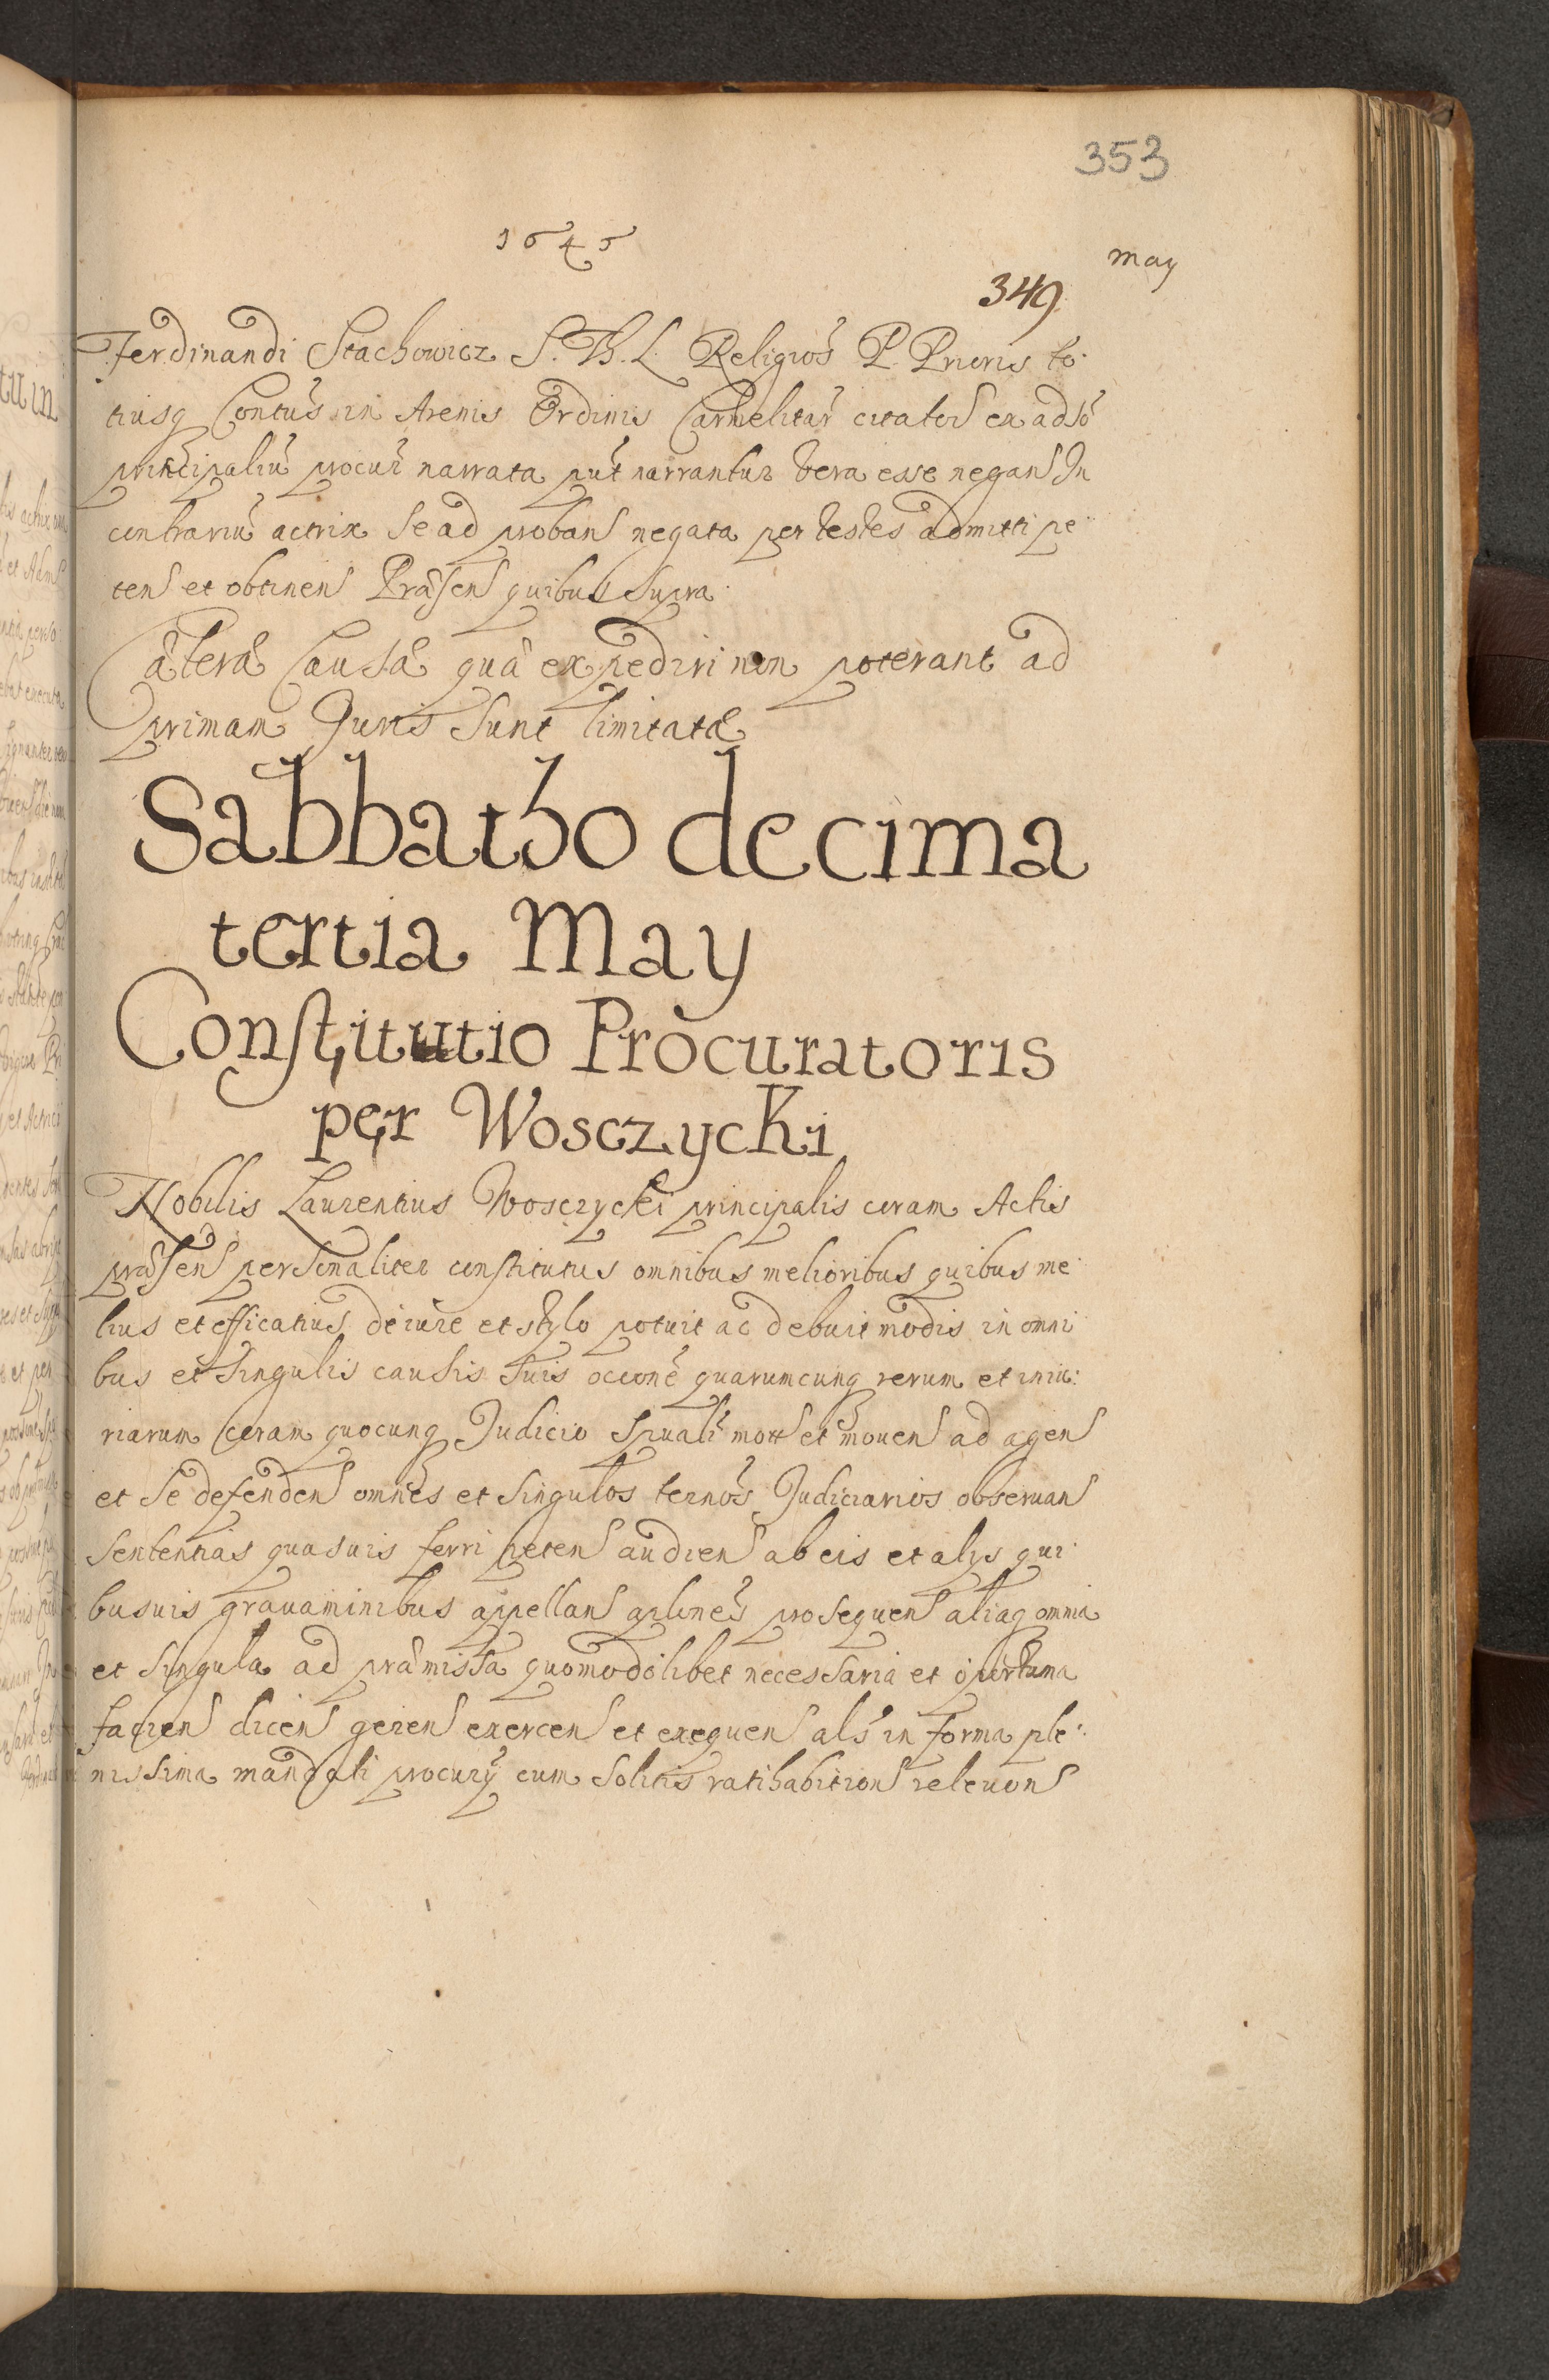 353
1645
May
349
Ferdinandi Stachowicz S. Th. L. Religios P. Prioris to
tiusq Contus in Arenis Ordinis Carmelitar citator ex adso
principaliu procur narrata put narrantur vera esse negans In
contrariu actrix se ad proban negata per testes admitti pe
ten et obtinen Præsen quibus supra
Cæteræ Causæ quæ expediri non poterant ad
primam Juris sunt limitatæ
Sabbatho decima
tertia May
Constitutio Procuratoris
per Wosczycki
Nobilis Laurentius Wosczycki principalis coram Actis
præsen personaliter constitutus omnibus melioribus quibus me
lius et efficatius de iure et stylo potuit ac debuit modis in omni
bus et singulis causis suis occone quarumcunq rerum et iniu:
riarum coram quocunq Judicio spuali mott et mouen ad agen
et se defenden omnes et singulos ternos Judiciarios obseruan
sententias quasuis ferri peten audien ab eis et alys qui
busuis grauaminibus appellan aplones prosequen aliaq omnia
et singula ad præmissa quomodolibet necessaria et oportuna
facien dicen geren exercen et exequen als in forma ple:
nissima mandati procury cum solitis ratihabition releuon